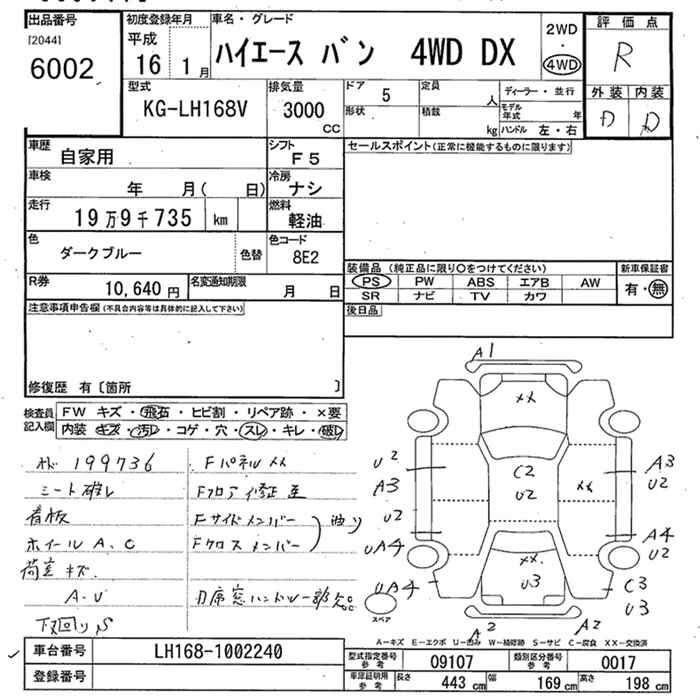 出品番号 初度登録年月 車名・グレード 2WD 評価点
[2044] 平成 ・
6002 16年 1月 ハイエース バン 4WD DX 4WD R
型式 排気量 ドア 5 定員 人 ディーラー・並行 外装 内装
KG-LH168V 3000 CC 形状 積載 kg モデル年式 年 D D
ハンドル 左・右
車歴 自家用 シフト F5 セールスポイント(正常に機能するものに限ります)
車検 年 月( 日) 冷房 ナシ
走行 19万9千735 km 燃料 軽油
色 ダークブルー 色替 色コード 8E2
装備品(純正品に限り○をつけてください) 新車保証書
R券 10,640円 名変通知期限 月 日 PS PW ABS エアB AW 有・無
SR ナビ TV カワ
注意事項申告欄(不具合内容等は具体的に記入して下さい) 後日品
修復歴 有〔箇所 〕
検査員記入欄 FW キズ・飛石・ヒビ割・リペア跡・×要
内装 キズ・汚レ・コゲ・穴・スレ・キレ・破レ
199736 Fパネル XX
シート破レ Fフロア 修
看板 Fサイドメンバー
ホイール A.C Fクロスメンバー
荷室 キズ
A.U
下回り S
A1
XX
U2 C2 A3
A3 U2 XX U2
U2 A4
UA4 XX U2
UA4 U3 C3
U3
スペア
A2 A2
A-キズ E-エクボ U-凹み W-補修跡 S-サビ C-腐食 XX-交換済
車台番号 LH168-1002240 型式指定番号 参考 09107 類別区分番号 参考 0017
登録番号 車庫証明用 参考 長さ 443cm 幅 169cm 高さ 198cm